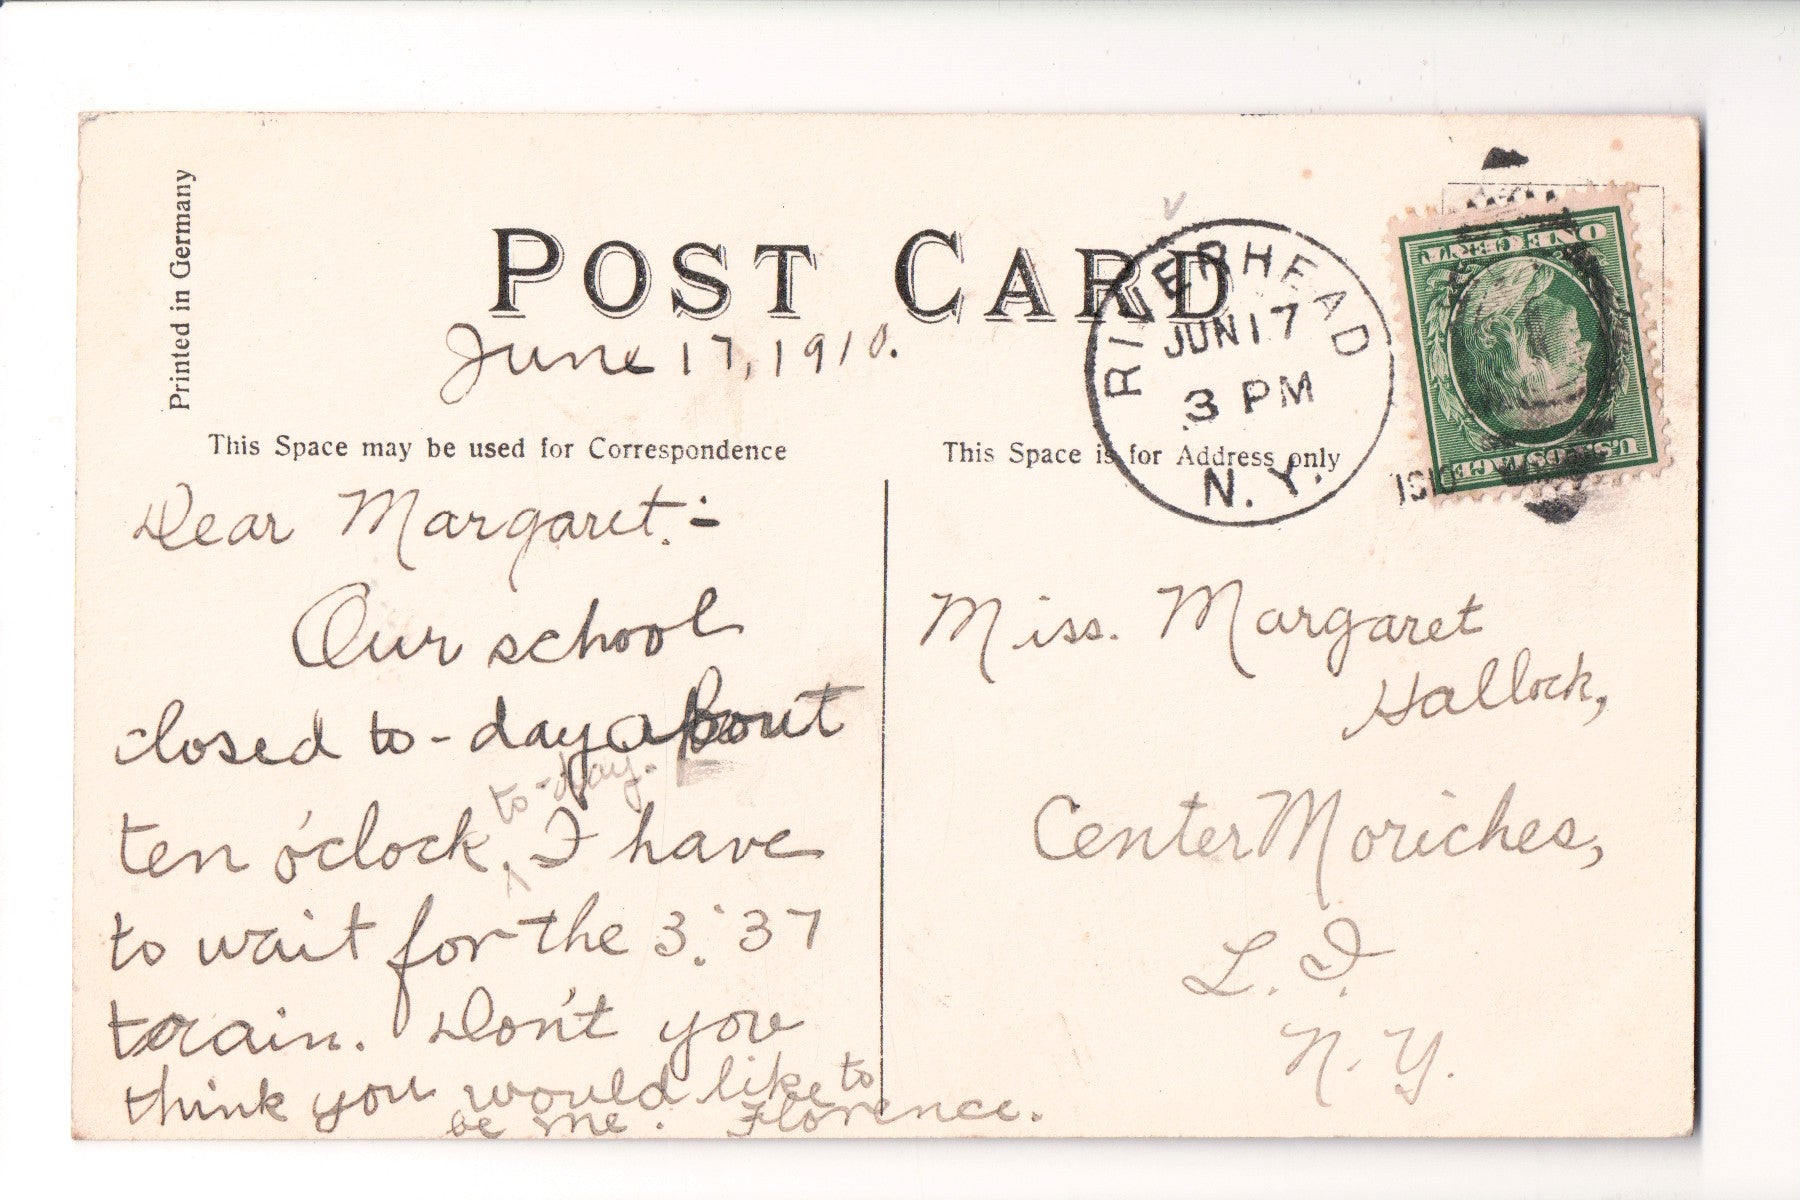 Printed in Germany
POST CARD
June 17, 1910.
This Space may be used for Correspondence
This Space is for Address only
RIVERHEAD
JUN 17
3 PM
N.Y.
1910
ONE CENT
U.S. POSTAGE
Dear Margaret:-
Our school
closed to-day about
to-day.
ten o'clock, I have
to wait for the 3:37
train. Don't you
think you would like to
be me. Florence.
Miss. Margaret
Hallock,
Center Moriches,
L. I.
N. Y.